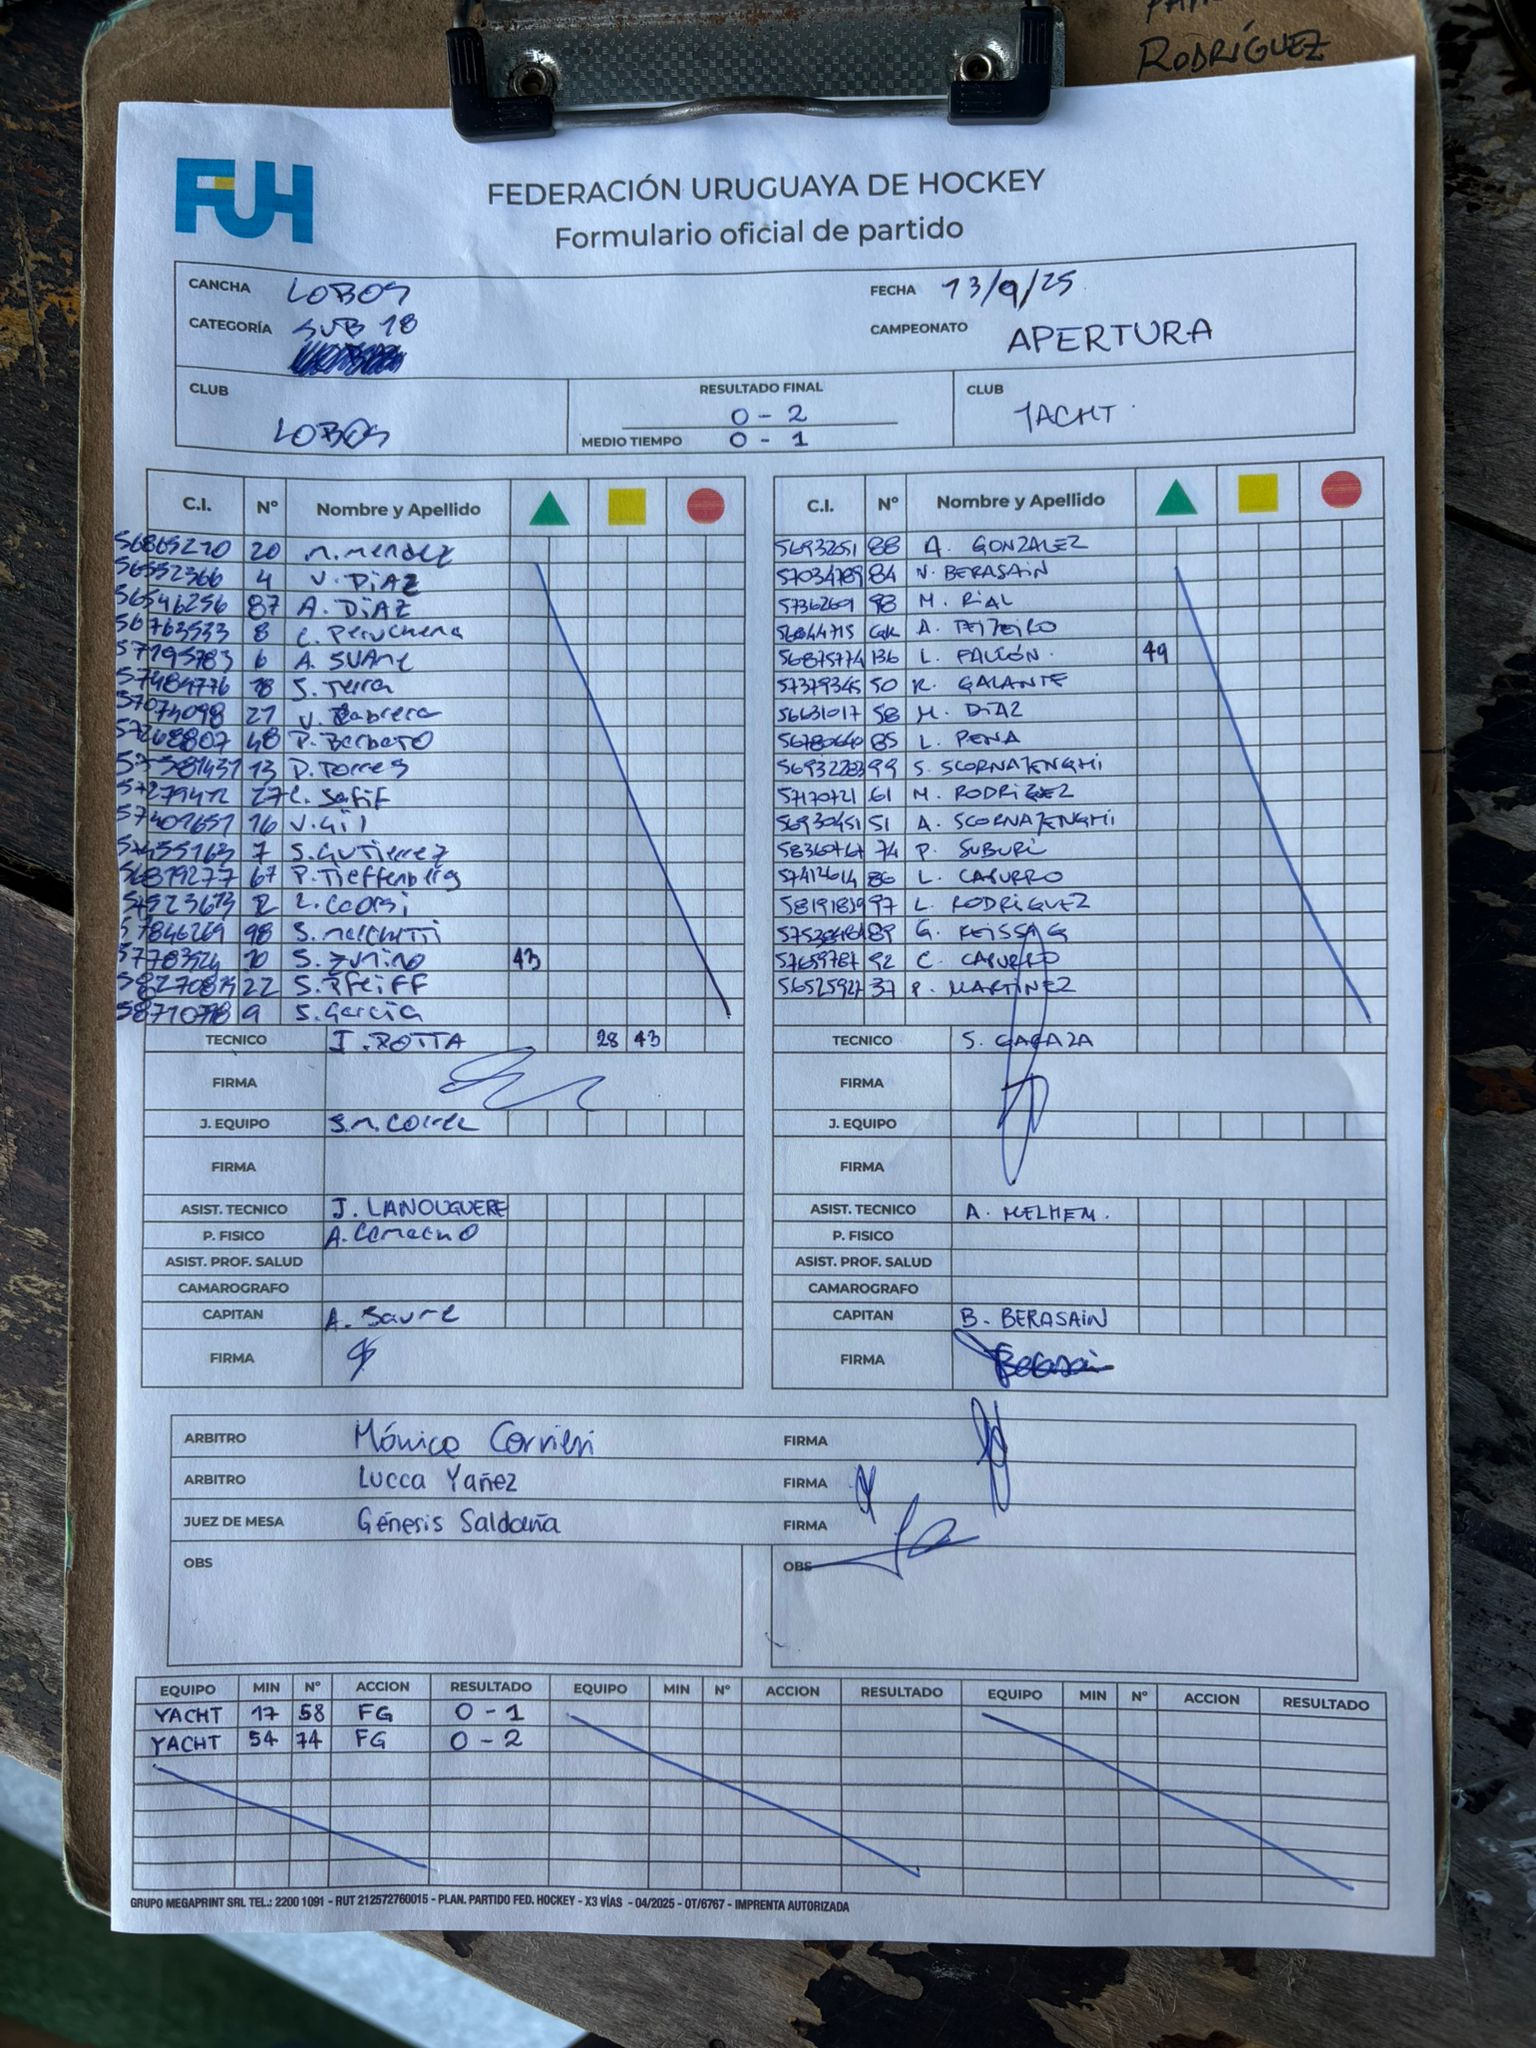 RODRÍGUEZ
FUH
FEDERACIÓN URUGUAYA DE HOCKEY
Formulario oficial de partido
CANCHA LOBOS FECHA 13/9/25
CATEGORÍA SUB 18 CAMPEONATO APERTURA
CLUB LOBOS RESULTADO FINAL 0 - 2 CLUB YACHT
MEDIO TIEMPO 0 - 1
C.I. Nº Nombre y Apellido
56865210 20 M. Mendez
56552366 4 V. DIAZ
56546256 87 A. DIAZ
56763533 8 C. Peruchena
57195783 6 A.
57484776 18 S. Terra
57074098 21 V. Cabrera
57268807 48 P. Berbato
13 D. Torres
57279412 27 C.
57409651 16 V. Gil
57455163 7 S. Gutierrez
56879277 67 P. Tieffenberg
2 L. Coorsi
57846269 98 S.
57783524 10 S. Zunino 43
22 S. Pfeiff
58710798 9 S. Garcia
TECNICO J. ROTTA 28 43
FIRMA
J. EQUIPO S.M.
FIRMA
ASIST. TECNICO J. LANOUGUERE
P. FISICO A. Camacho
ASIST. PROF. SALUD
CAMAROGRAFO
CAPITAN A.
FIRMA
C.I. Nº Nombre y Apellido
56932651 88 A. GONZALEZ
57034789 84 N. BERASAIN
5736269 98 M. RIAL
56044715 GK A. PEIZEIRO
56875774 136 L. FALCÓN. 49
57379345 50 K. GALANTE
56631017 58 M. DIAZ
56780660 85 L. PENA
56932283 99 S. SCORNAJENGHI
57170721 61 M. RODRIGUEZ
56930451 51 A. SCORNAJENGHI
58360767 74 P. SUBURÚ
57412614 86 L. CASURRO
58191839 97 L. RODRÍGUEZ
89 G. KEISSAG
57659787 92 C. CASURRO
56525927 37 P. MARTINEZ
TECNICO S. GARAZA
FIRMA
J. EQUIPO
FIRMA
ASIST. TECNICO A. MELHEM.
P. FISICO
ASIST. PROF. SALUD
CAMAROGRAFO
CAPITAN B. BERASAIN
FIRMA Berasain
ARBITRO Mónica Corrieri FIRMA
ARBITRO Lucca Yañez FIRMA
JUEZ DE MESA Génesis Saldaña FIRMA
OBS OBS
EQUIPO MIN Nº ACCION RESULTADO EQUIPO MIN Nº ACCION RESULTADO EQUIPO MIN Nº ACCION RESULTADO
YACHT 17 58 FG 0 - 1
YACHT 54 74 FG 0 - 2
GRUPO MEGAPRINT SRL TEL.: 2200 1091 - RUT 212572760015 - PLAN. PARTIDO FED. HOCKEY - X3 VÍAS - 04/2025 - OT/6767 - IMPRENTA AUTORIZADA